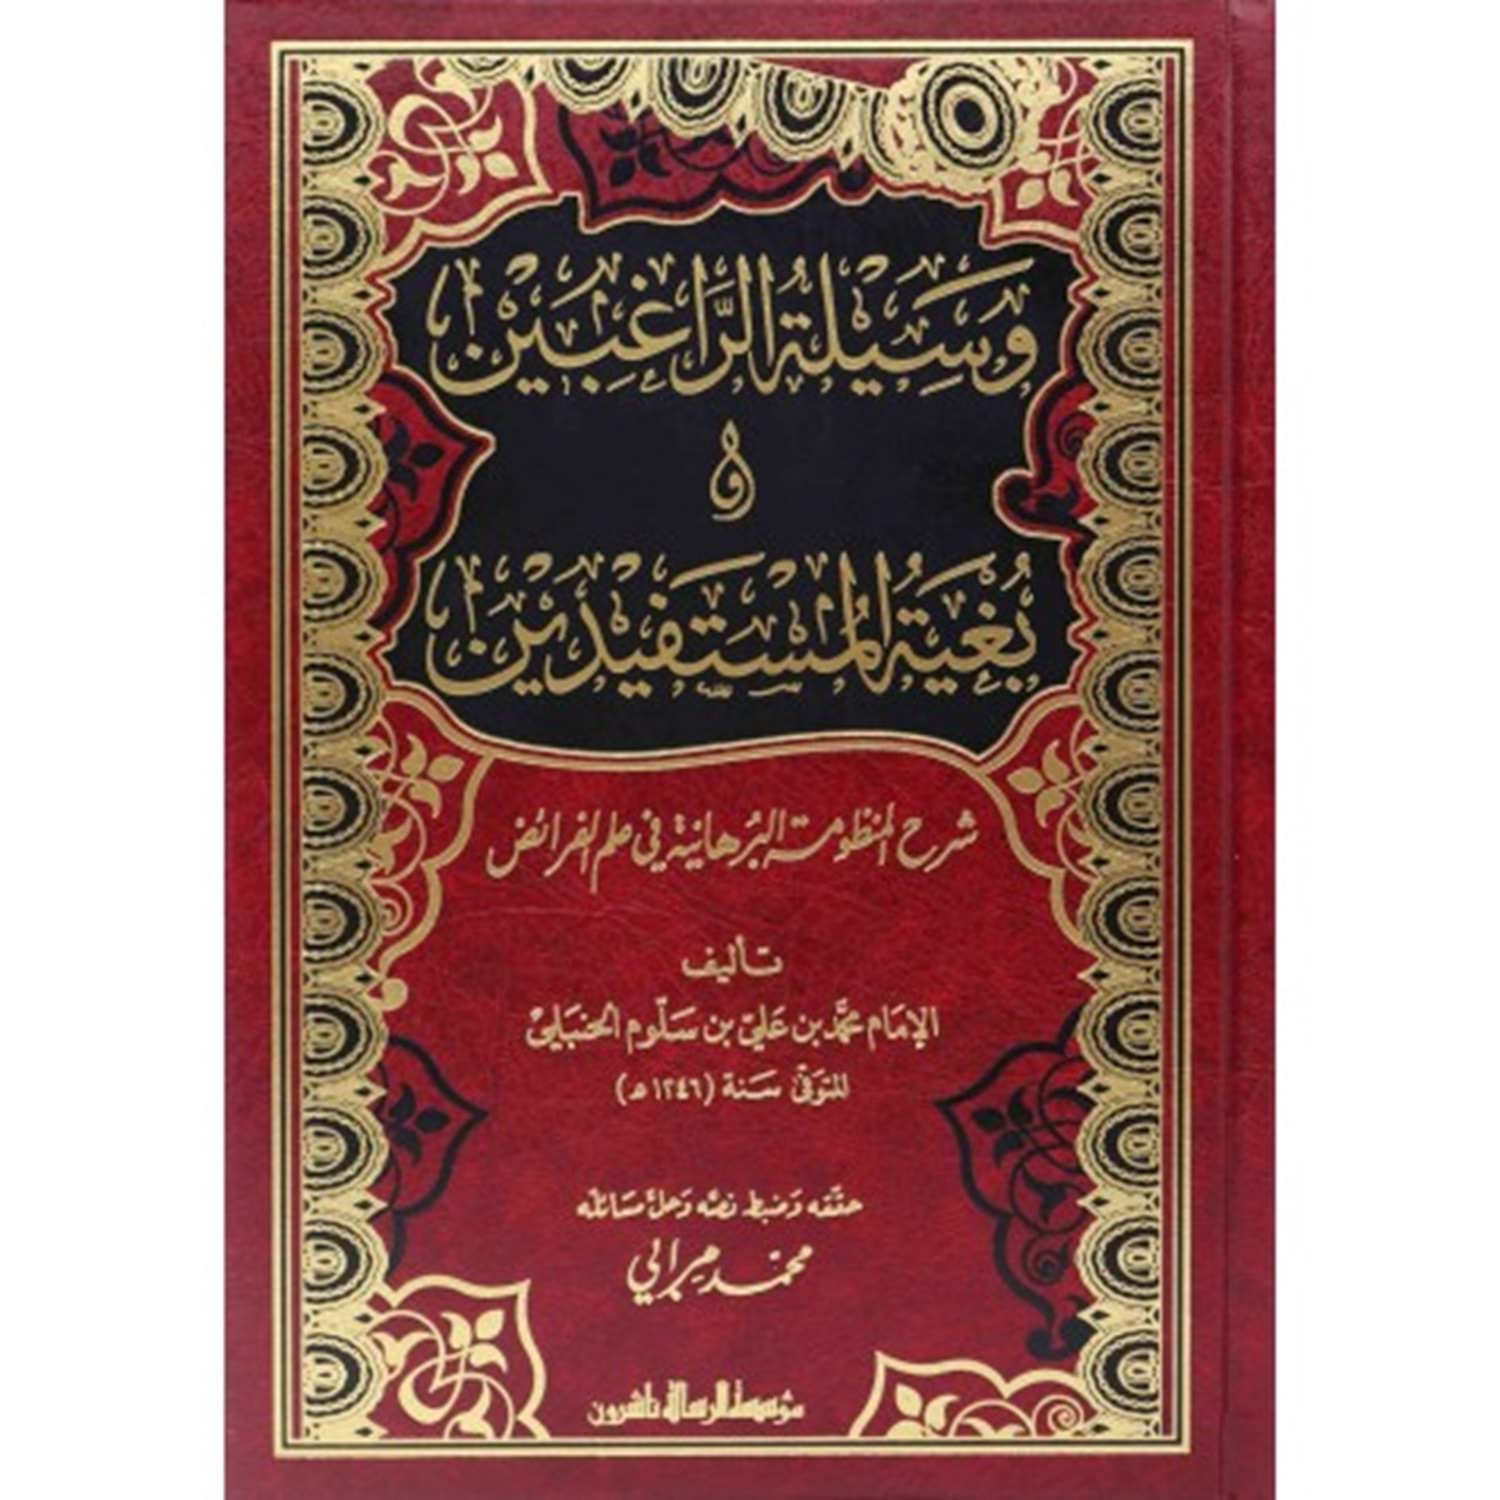 وَسَيِلَةُ الرَّاغِبَيْنَ
وَ
بُغْيَةُ الْمُسْتَفِيْدِيْنَ
شرح المنظومة البُرهانية في علم الفرائض
تأليف
الإمَام محمَّد بن عَليّ بن سَلّوم الحنبَليّ
المتوفى سَنة (١٢٤٦ هـ)
حقّقه وَضبط نصّه وَحلّ مسَائله
محمّد ميرالي
مؤسسة الرسالة ناشرون